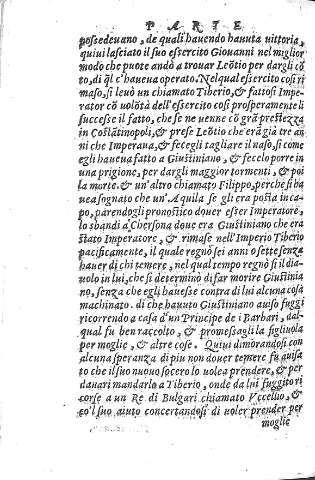 PARTE
possedeuano, de quali hauendo hauuta vittoria,
quiui lasciato il suo essercito Giouanni nel miglior
modo che puote andò a trouar Leōtio per dargli cō
to, di q̃l c'haueua operato. Nel qual essercito cosi ri
maso, si leuò un chiamato Tiberio, & fattosi Impe-
rator cō uolōtà dell'essercito cosi prosperamente li
successe il fatto, che se ne uenne cō grā prestezza
in Costātinopoli, & prese Leōtio che era già tre an
ni che Imperana, & fecegli tagliare il naso, si come
egli haueua fatto a Giustiniano, & fecelo porre in
una prigione, per dargli maggior tormenti, & poi
la morte. & un'altro chiamato Filippo, perche si ha
uea sognato che un'Aquila se gli era posta in ca-
po, parendogli pronostico douer esser Imperatore,
lo sbandì a Chersona doue era Giustiniano che era
stato Imperatore, & rimase nell'Imperio Tiberio
pacificamente, il quale regnò sei anni o sette senza
hauer di chi temere, nel qual tempo regnò si il dia-
uolo in lui, che si determinò di far morire Giustinia
no, senza che egli hauesse contra di lui alcuna cosa
machinato. di che hauuto Giustiniano auiso fuggì
ricorrendo a casa d'un Principe de i Barbari, dal-
qual fu ben raccolto, & promessagli la figliuola
per moglie, & altre cose. Quiui dimorandosi con
alcuna speranza di piu non douer temere fu auisa
to che il suo nuouo socero lo uolea prendere, & per
danari mandarlo a Tiberio, onde da lui fuggito ri
corse a un Re di Bulgari chiamato Vccellio, &
co'l suo aiuto concertandosi di uoler prender per
moglie